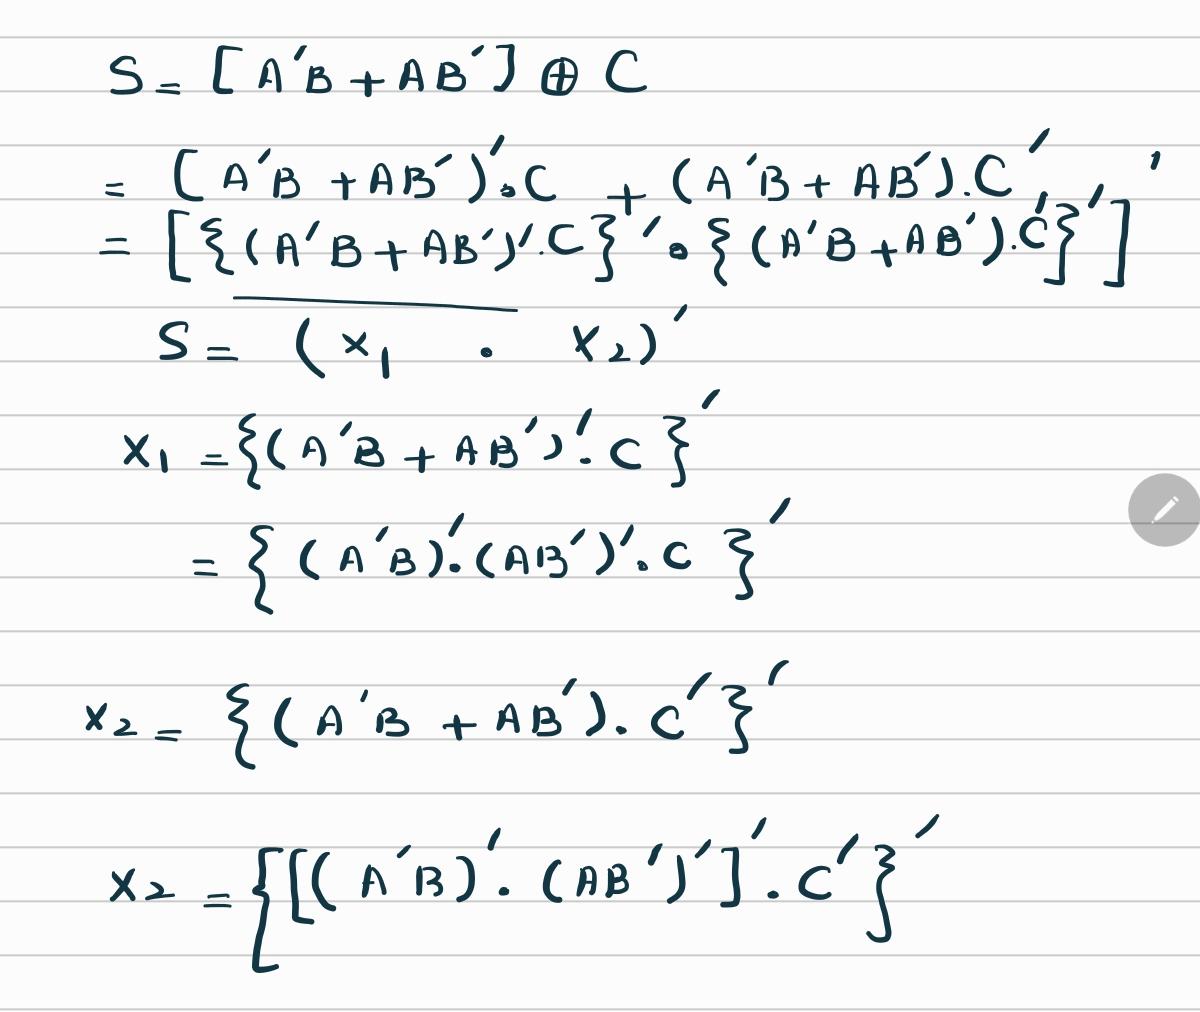 S = [A'B + AB'] ⊕ C
= [A'B + AB')'.C + (A'B + AB').C'
= [{(A'B + AB')'.C}' . {(A'B + AB').C'}']'
S = (x₁ . x₂)'
x₁ = {(A'B + AB')'.C}'
= {(A'B)'.(AB')'.C}'
x₂ = {(A'B + AB').C'}'
x₂ = {[(A'B)'.(AB')']'.C'}'